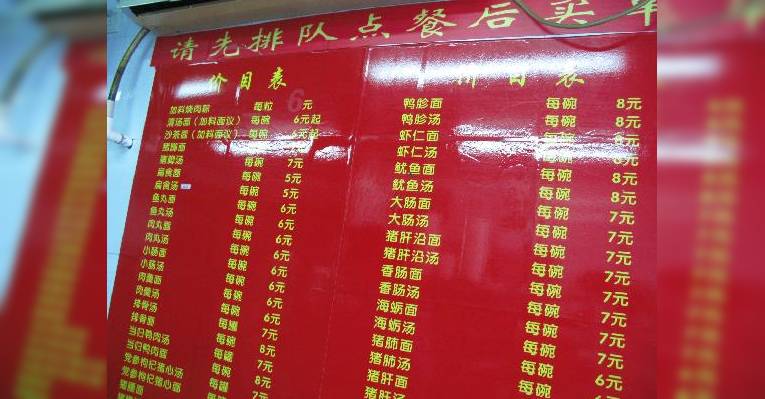 请先排队点餐后买单
价目表
加料烧肉粽 每粒 元
清汤面（加料面议） 每碗 6元起
沙茶面（加料面议） 每碗 6元起
猪脚面
猪脚汤 每碗 7元
扁食面 每碗 5元
扁食汤 每碗 5元
鱼丸面 每碗 6元
鱼丸汤 每碗 6元
肉丸面 每碗 6元
肉丸汤 每碗 6元
小肠面 每碗 6元
小肠汤 每碗 6元
肉羹面 每碗 6元
肉羹汤 每碗 6元
排骨汤 每罐 7元
排骨面 每碗 8元
当归鸭肉汤 每罐 7元
当归鸭肉面 每碗 8元
党参枸杞猪心汤 每罐
党参枸杞猪心面
猪腰面
目表
鸭胗面 每碗 8元
鸭胗汤 每碗 8元
虾仁面 每碗 8元
虾仁汤 每碗 8元
鱿鱼面 每碗 8元
鱿鱼汤 每碗 8元
大肠面 每碗 7元
大肠汤 每碗 7元
猪肝沿面 每碗 7元
猪肝沿汤 每碗 7元
香肠面 每碗 7元
香肠汤 每碗 7元
海蛎面 每碗 7元
海蛎汤 每碗 7元
猪肺面 每碗 6元
猪肺汤 每碗 6元
猪肝面
猪肝汤